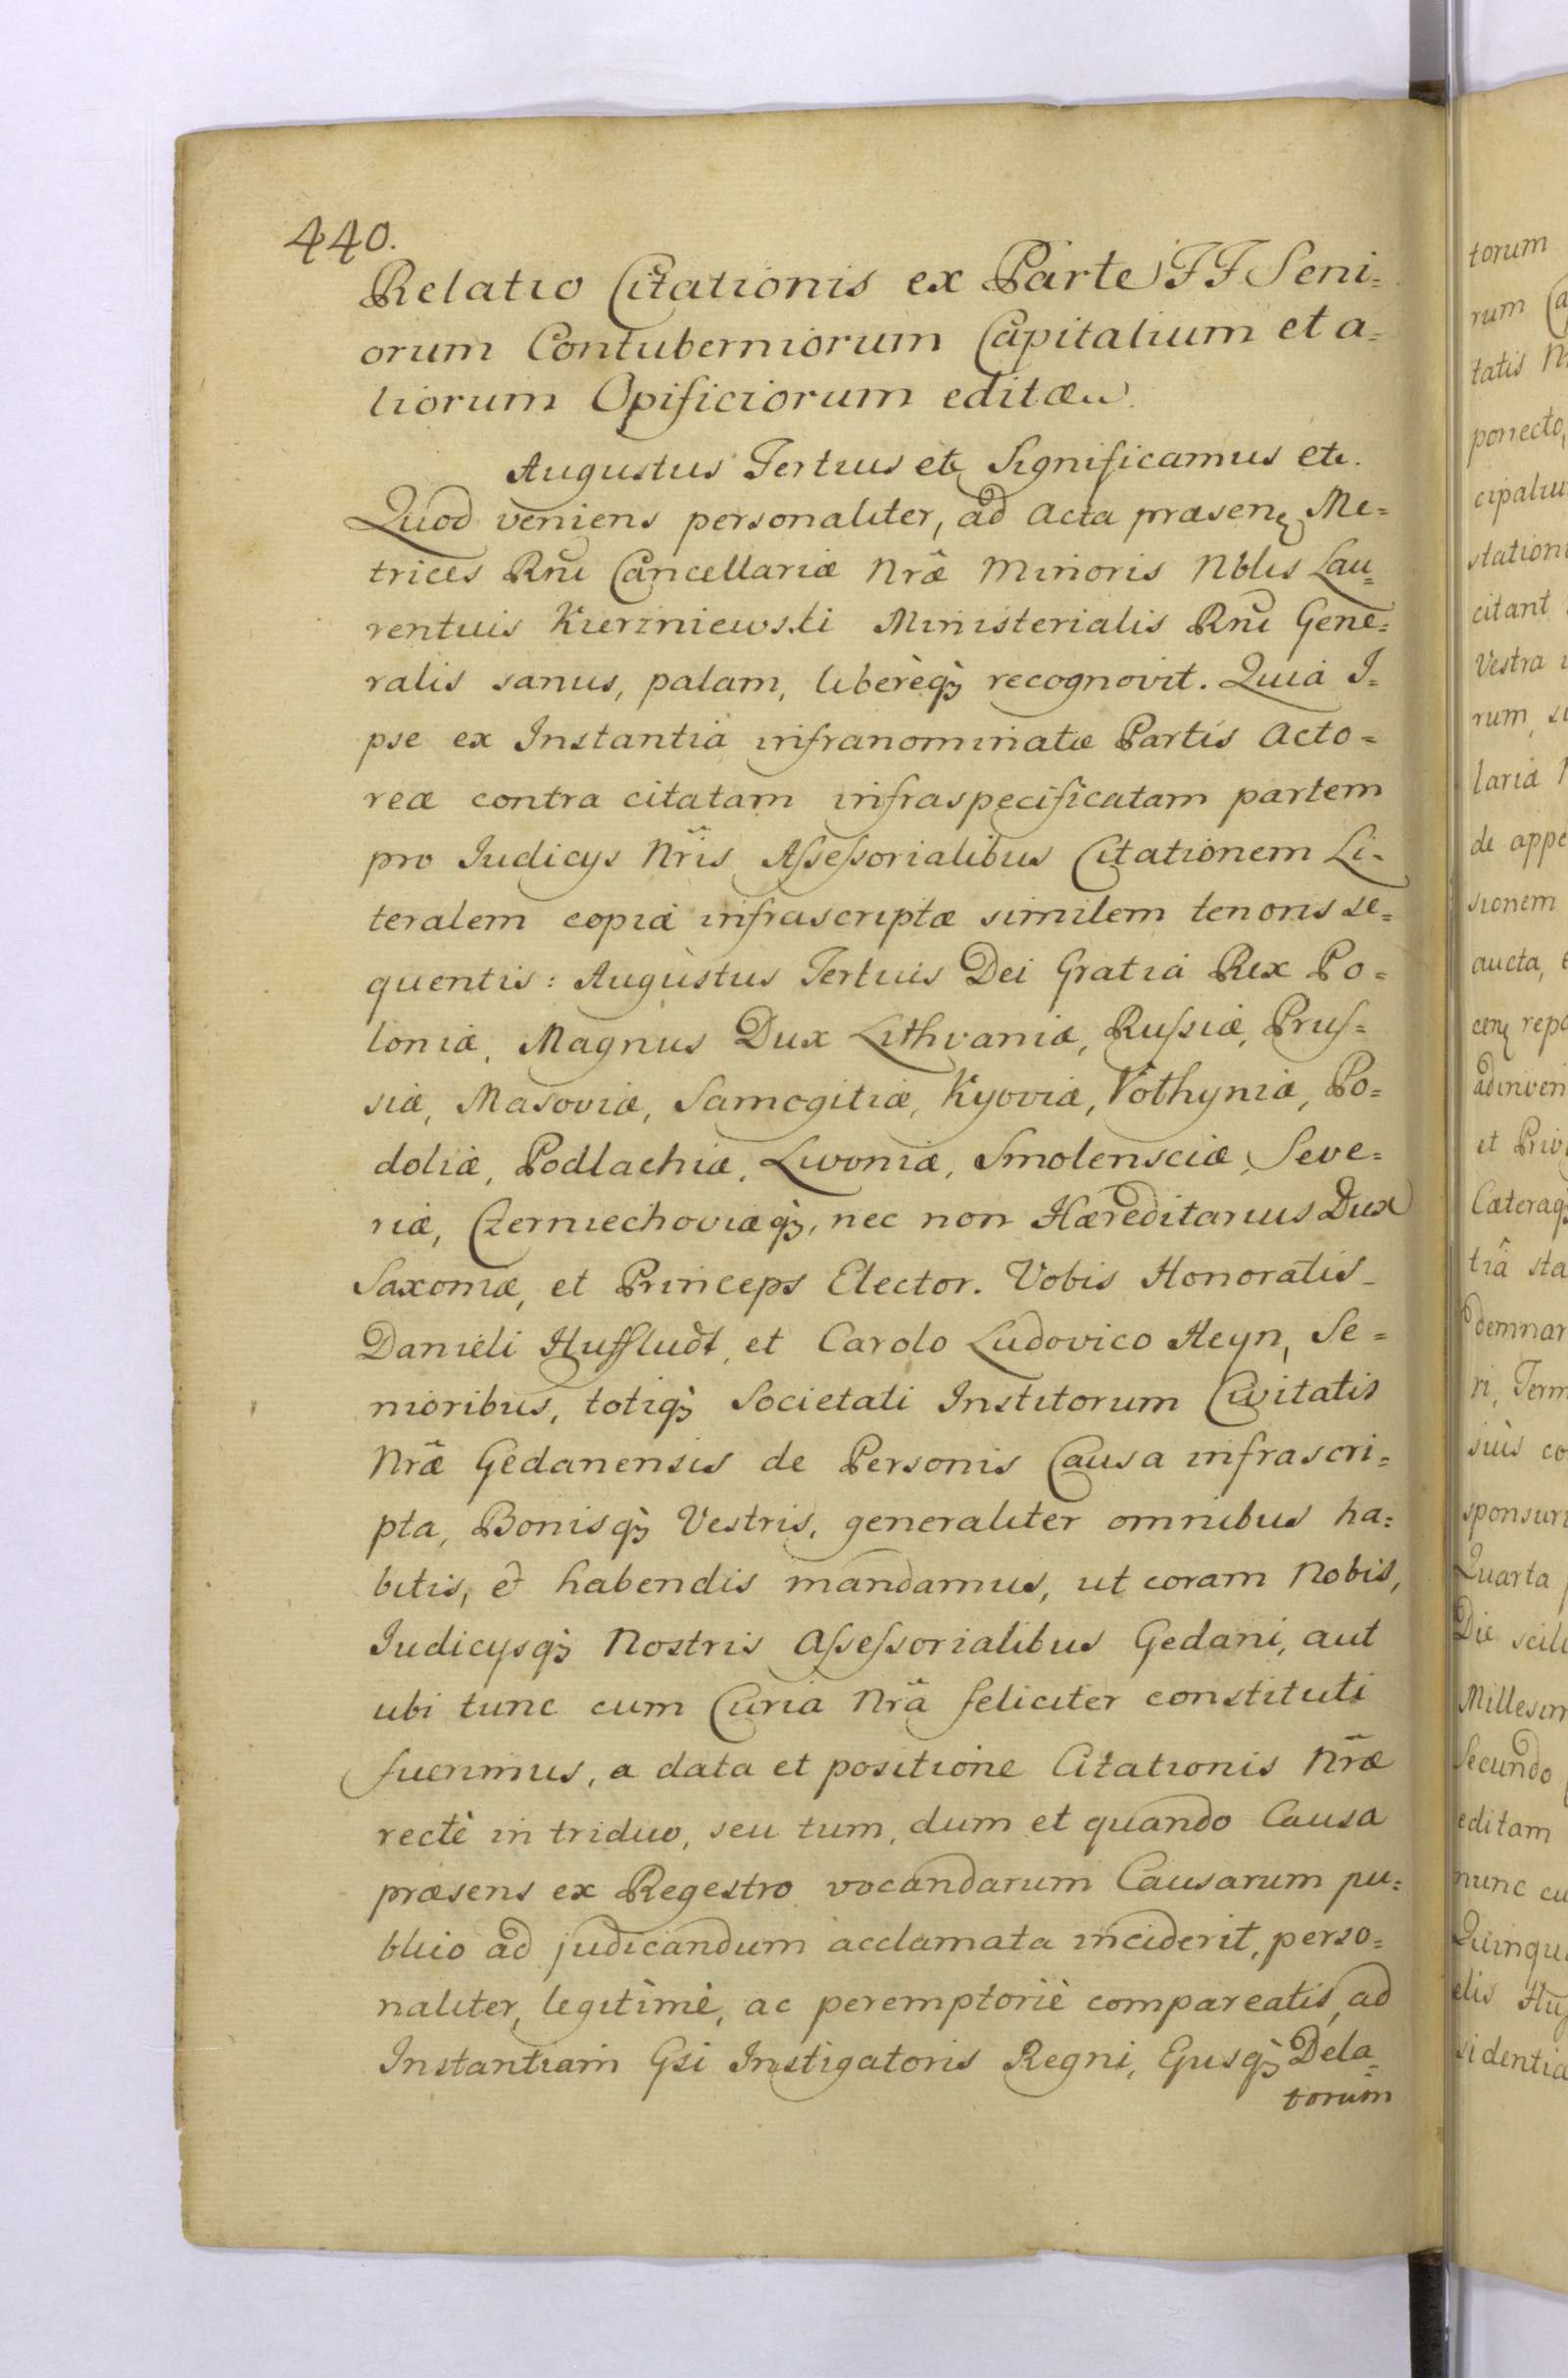 440.
Relatio Citationis ex Parte FF Seni=
orum Contuberniorum Capitalium et a=
liorum Opificiorum editæ
Augustus Tertius etc Significamus etc.
Quod veniens personaliter, ad Acta præsen. Me=
trices Rñi Cancellariæ Nræ Minoris Nblis Lau=
rentius Kierzniewski Ministerialis Rñi Gene=
ralis sanus, palam, liberèq3 recognovit. Quia I=
pse ex Instantiâ infranominatæ Partis Acto=
reæ contra citatam infraspecificatam partem
pro Iudicys Nr̃is Aſseſsorialibus Citationem Li=
teralem copiæ infrascriptæ similem tenoris se=
quentis: Augustus Tertius Dei Gratiâ Rex Po=
loniæ, Magnus Dux Lithvaniæ, Ruſsiæ, Pruſ=
siæ, Masoviæ, Samogitiæ, Kyoviæ, Volhyniæ, Po=
doliæ, Podlachiæ, Livoniæ, Smolensciæ, Seve=
riæ, Czerniechoviæq3, nec non Hæreditarius Dux
Saxoniæ, et Princeps Elector. Vobis Honoratis
Danieli Huffludt, et Carolo Ludovico Heyn, Se=
nioribus, totiq3 Societati Institorum Civitatis
Nræ Gedanensis de Personis Causa infrascri=
pta, Bonisq3 Vestris, generaliter omnibus ha=
bitis, et habendis mandamus, ut coram Nobis,
Iudicysq3 Nostris Aſseſsorialibus Gedani, aut
ubi tunc cum Curia Nrã feliciter constituti
fuerimus, a data et positione Citationis Nr̃æ
rectè in triduo, seu tum, dum et quando Causa
præsens ex Regestro vocandarum Causarum pu=
blico ad judicandum acclamata inciderit, perso=
naliter, legitimè, ac peremptoriè compareatis, ad
Instantiam Gsi Instigatoris Regni, Ejusq3 Dela=
torum
torum
rum
tatis
porrecto,
cipaliu
station
citant
Vestra
rum,
laria
de appe
sionem
aucta,
repo
adinven
et Priv
Cæteraq3
sta
demnar
ri, Term
suis co
sponsur
Quarta
Die scili
Millesim
Secundo
editam
nunc cu
Quinqu
elis Huf
sidentia